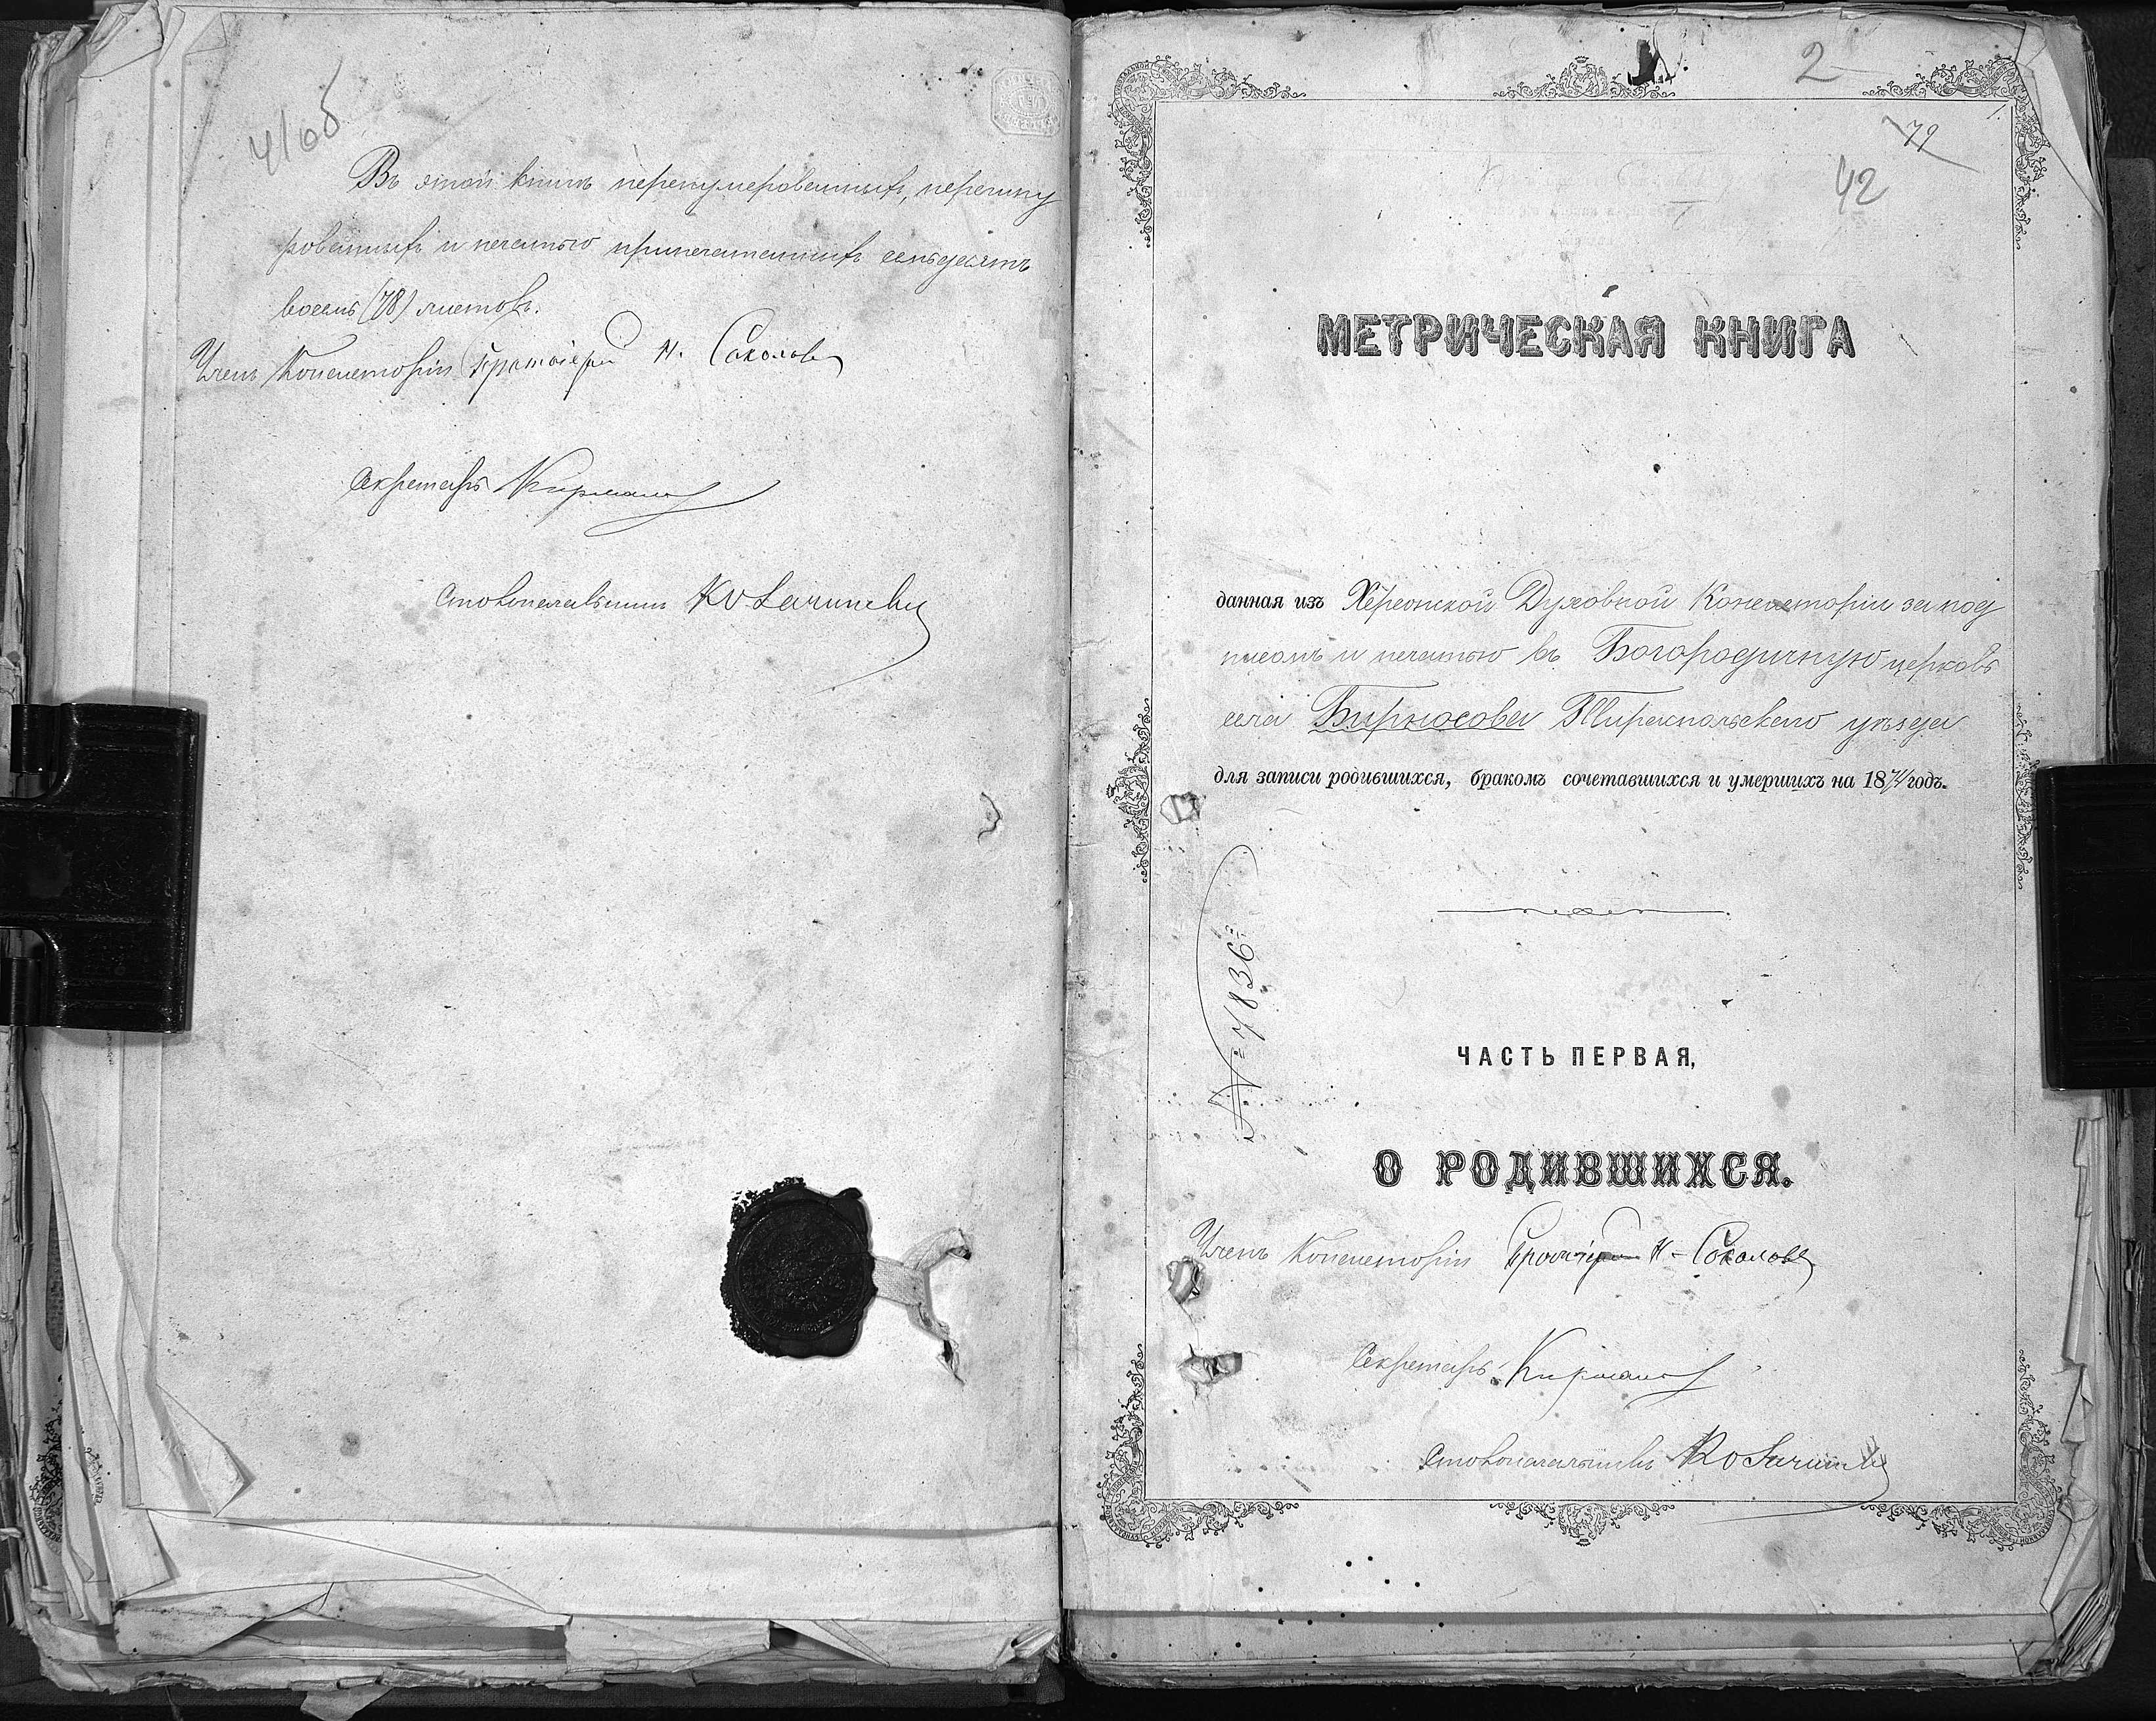 41об
Въ этой книгѣ перенумерованныхъ, перешну
рованныхъ и печатью припечатанныхъ семьдесятъ
восемь (78) листовъ.
Членъ Консисторіи Протоіерей Н. Соколовъ
Секретарь
Столоначальникъ
2
79
42
МЕТРИЧЕСКАЯ КНИГА
данная изъ Херсонской Духовной Консисторіи за под
писомъ и печатью въ Богородичную церковь
села Бирносова Тираспольскаго уѣзда
для записи родившихся, бракомъ сочетавшихся и умершихъ на 1874 годъ.
№ 7836
ЧАСТЬ ПЕРВАЯ,
О РОДИВШИХСЯ.
Членъ Консисторіи Протоіерей Н. Соколовъ
Секретарь
Столоначальникъ